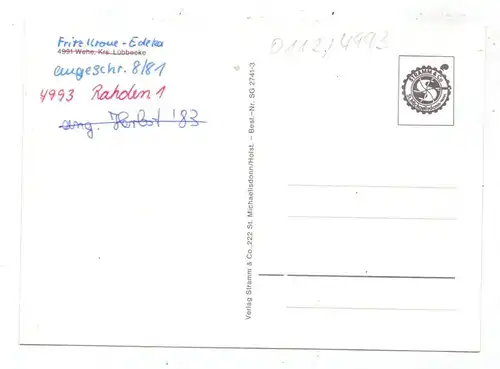 Fritz Krone - Edeka
4991 Wehe, Krs. Lübbecke
angeschr. 8/81
4993 Rahden 1
ang. Herbst '83
0112, 4993
STRAMM & Co.
Verlag Stramm & Co., 222 St. Michaelisdonn/Holst. – Best.-Nr. SG 2741-3